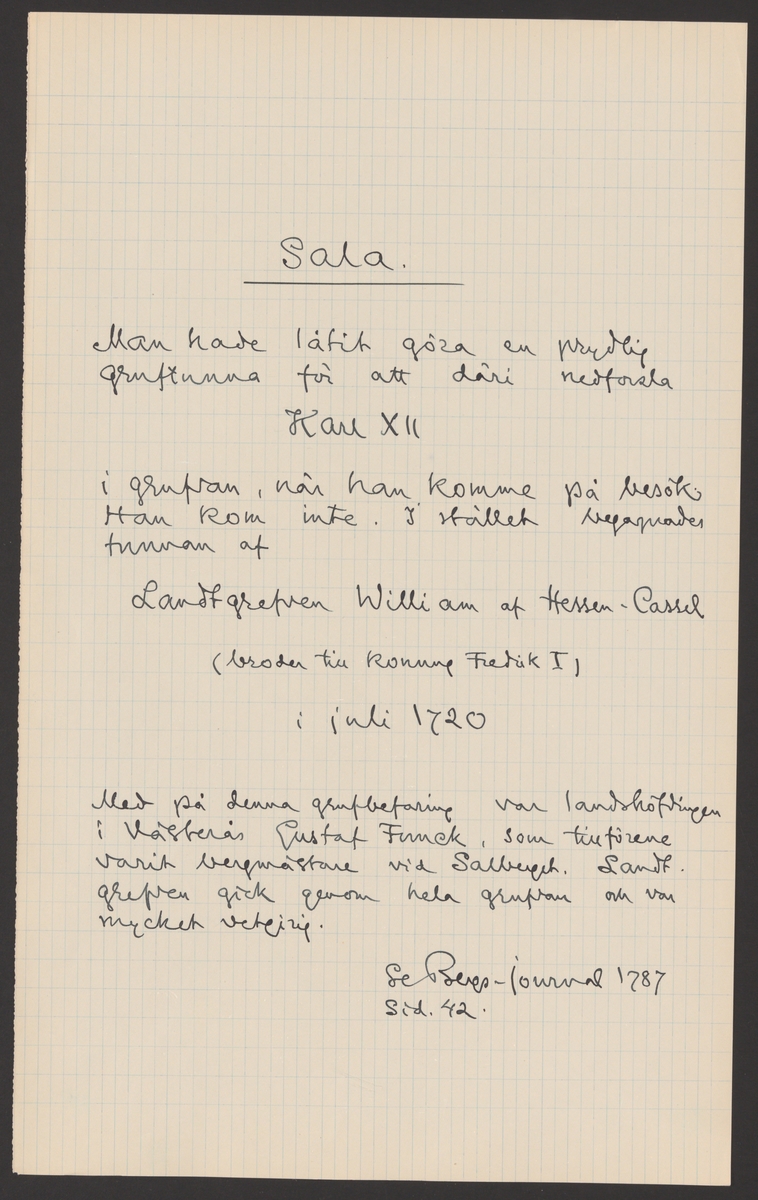 Sala.
Man hade låtit göra en prydlig
gruftunna för att däri nedforsla
Karl XII
i grufvan, när han komme på besök.
Han kom inte. I stället begagnades
tunnan af
Landtgrefven William af Hessen-Cassel
(broder till konung Fredrik I)
i juli 1720
Med på denna grufbefaring var landshöfdingen
i Västerås Gustaf Funck, som tillförene
varit bergmästare vid Salberget. Landt-
grefven gick genom hela grufvan och var
mycket vetgirig.
Se Bergs-journal 1787
Sid. 42.